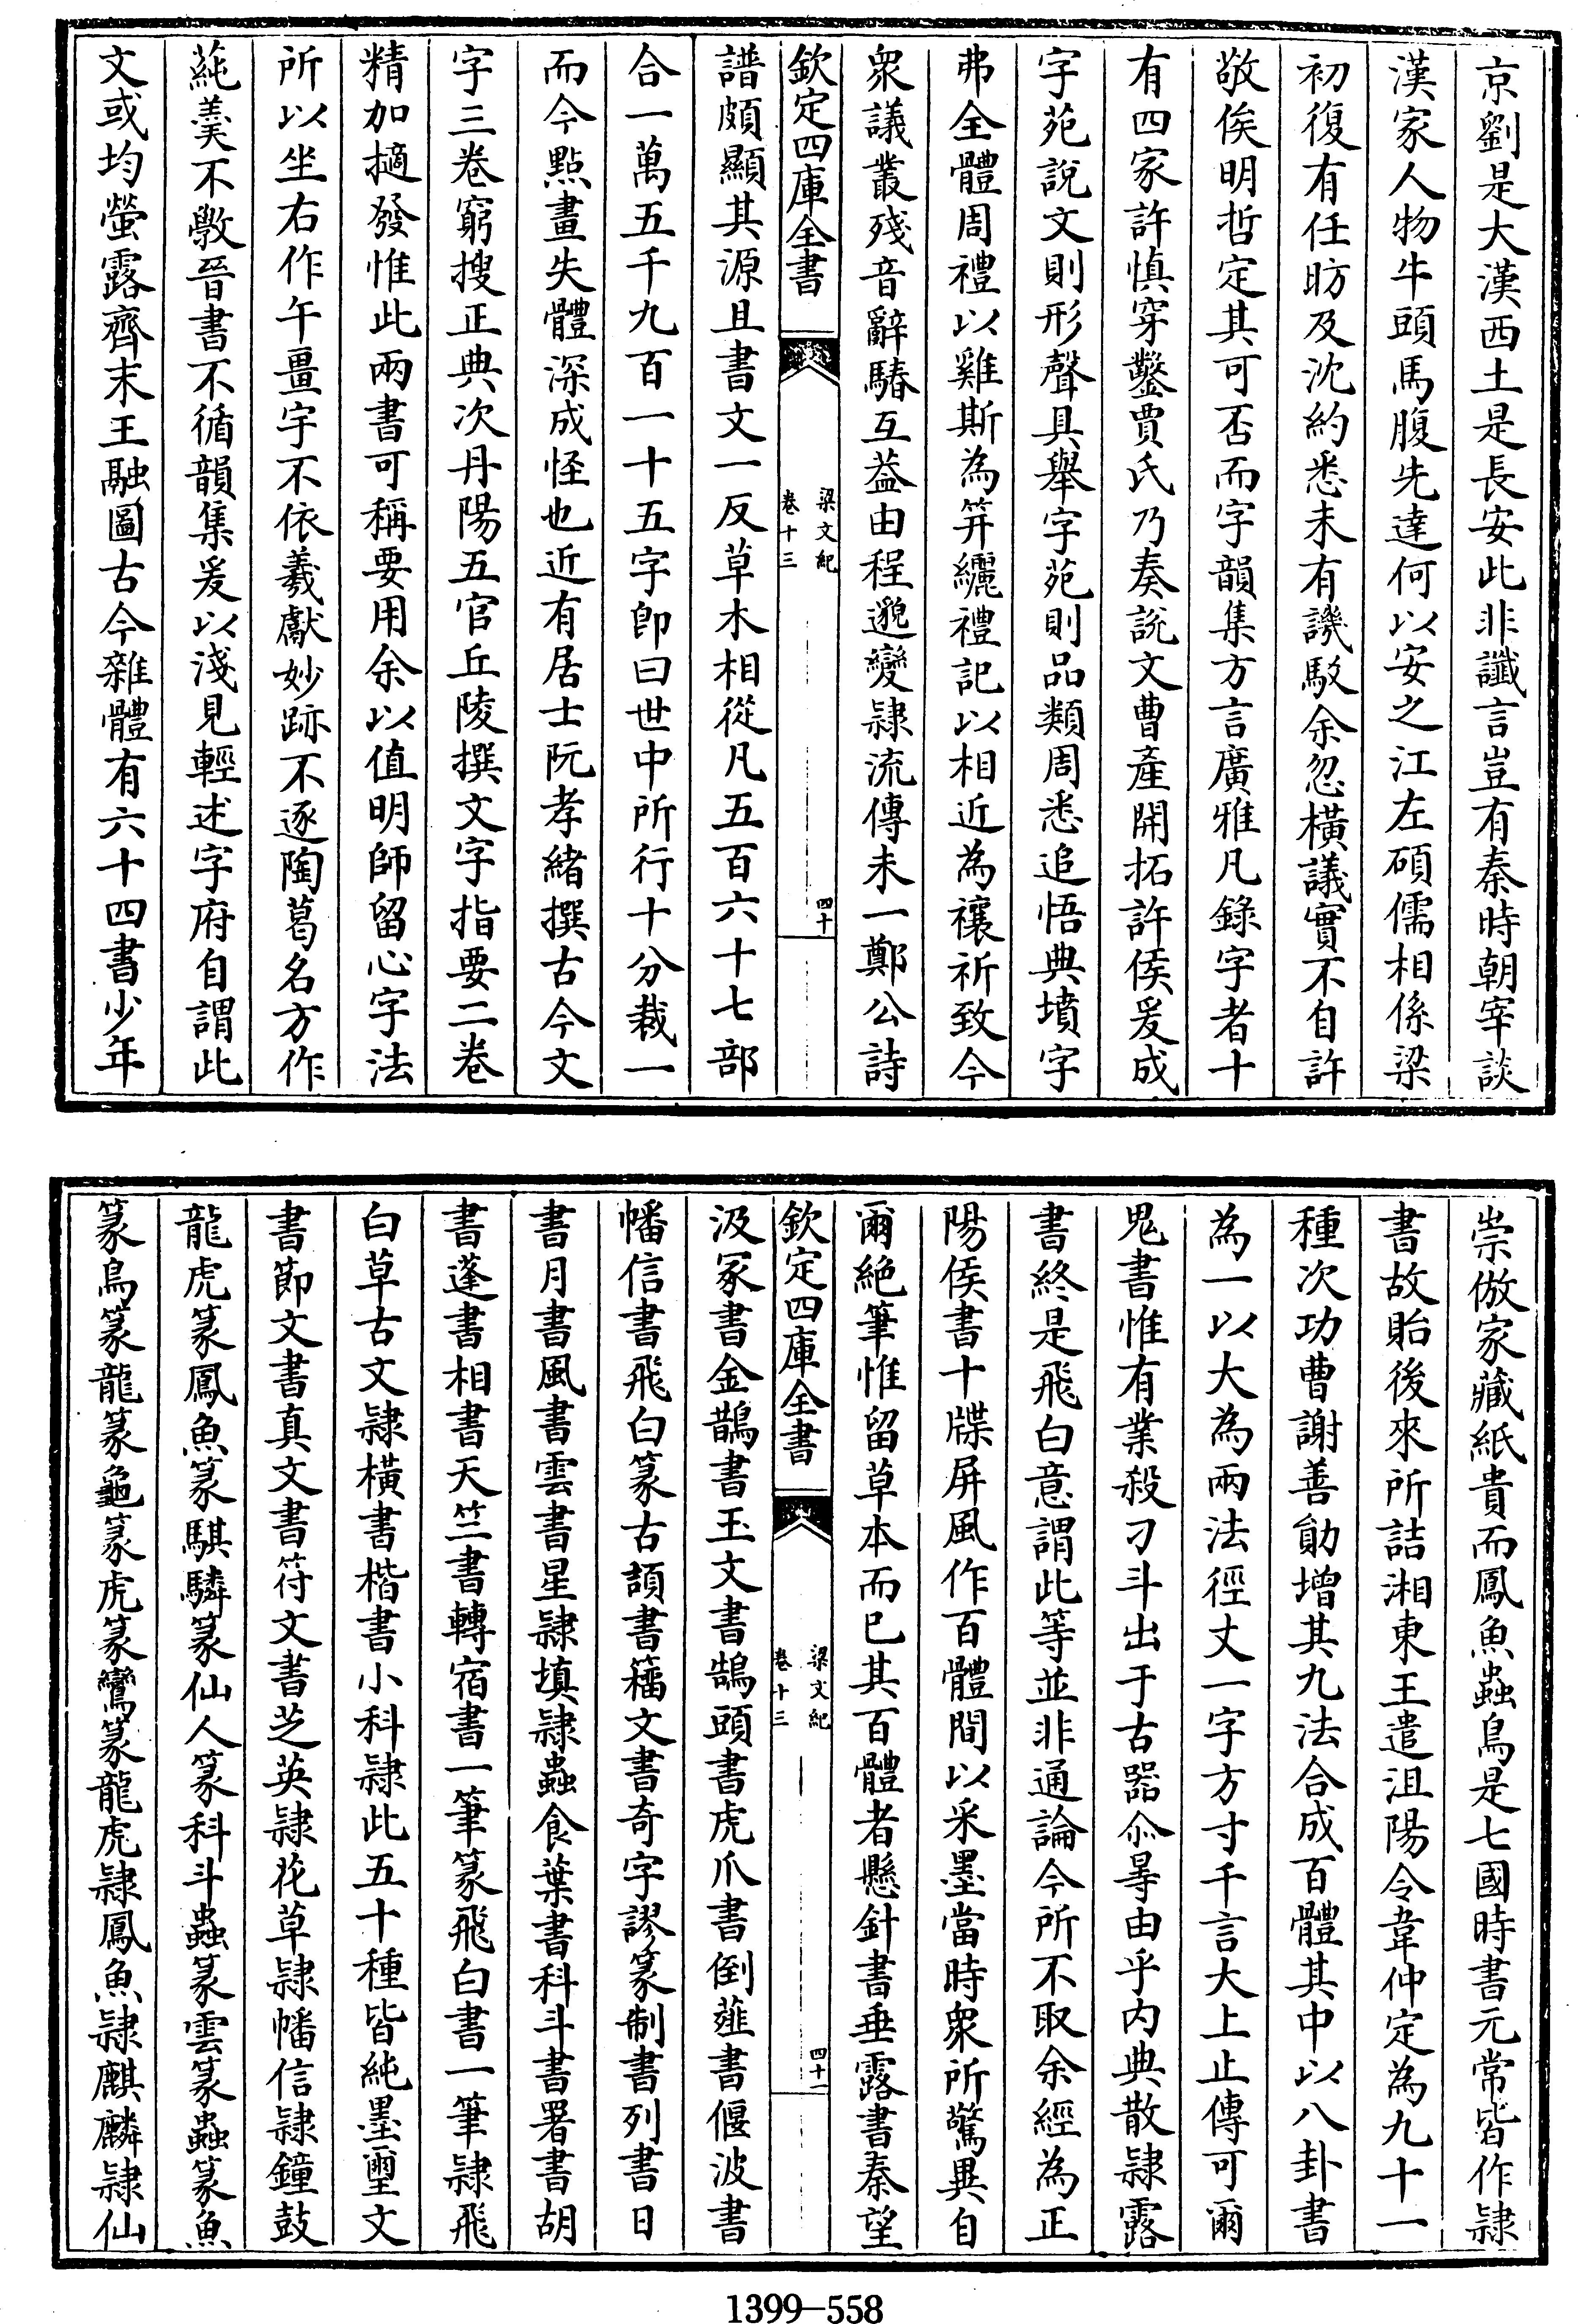 京劉是大漢西土是長安此非讖言豈有秦時朝宰談
漢家人物牛頭馬腹先達何以安之江左碩儒相係梁
初復有任昉及沈約悉未有譏駁余忽橫議實不自許
敬俟明哲定其可否而字韻集方言廣雅凡錄字者十
有四家許慎穿鑿賈氏乃奏說文曹產開拓許侯爰成
字苑說文則形聲具舉字苑則品類周悉追悟典墳字
弗全體周禮以雞斯為笄纚禮記以相近為禳祈致今
衆議叢殘音辭騞互葢由程邈變隸流傳未一鄭公詩
欽定四庫全書
梁文紀
卷十三
四十
譜頗顯其源且書文一反草木相從凡五百六十七部
合一萬五千九百一十五字卽曰世中所行十分裁一
而今點畫失體深成怪也近有居士阮孝緒撰古今文
字三卷窮搜正典次丹陽五官丘陵撰文字指要二卷
精加擿發惟此兩書可稱要用余以值明師留心字法
所以坐右作午畺宇不依羲獻妙跡不逐陶葛名方作
蒓羹不斆晉書不循韻集爰以淺見輕述字府自謂此
文或均螢露齊末王融圖古今雜體有六十四書少年
崇倣家藏紙貴而鳳魚蟲鳥是七國時書元常皆作隸
書故貽後來所詰湘東王遣沮陽令韋仲定為九十一
種次功曹謝善勛增其九法合成百體其中以八卦書
為一以大為兩法徑丈一字方寸千言大上止傳可爾
鬼書惟有業殺刁斗出于古器尒㝵由乎內典散隸露
書終是飛白意謂此等並非通論今所不取余經為正
陽侯書十牒屏風作百體間以采墨當時衆所驚異自
爾絕筆惟留草本而已其百體者懸針書垂露書秦望
欽定四庫全書
梁文紀
卷十三
四十一
汲冢書金鵲書玉文書鵠頭書虎爪書倒薤書偃波書
幡信書飛白篆古頡書籒文書奇字謬篆制書列書日
書月書風書雲書星隸填隸蟲食葉書科斗書署書胡
書蓬書相書天竺書轉宿書一筆篆飛白書一筆隸飛
白草古文隸橫書楷書小科隸此五十種皆純墨璽文
書節文書真文書符文書芝英隸花草隸幡信隸鐘鼓
龍虎篆鳳魚篆騏驎篆仙人篆科斗蟲篆雲篆蟲篆魚
篆鳥篆龍篆龜篆虎篆鸞篆龍虎隸鳳魚隸麒麟隸仙
1399—558